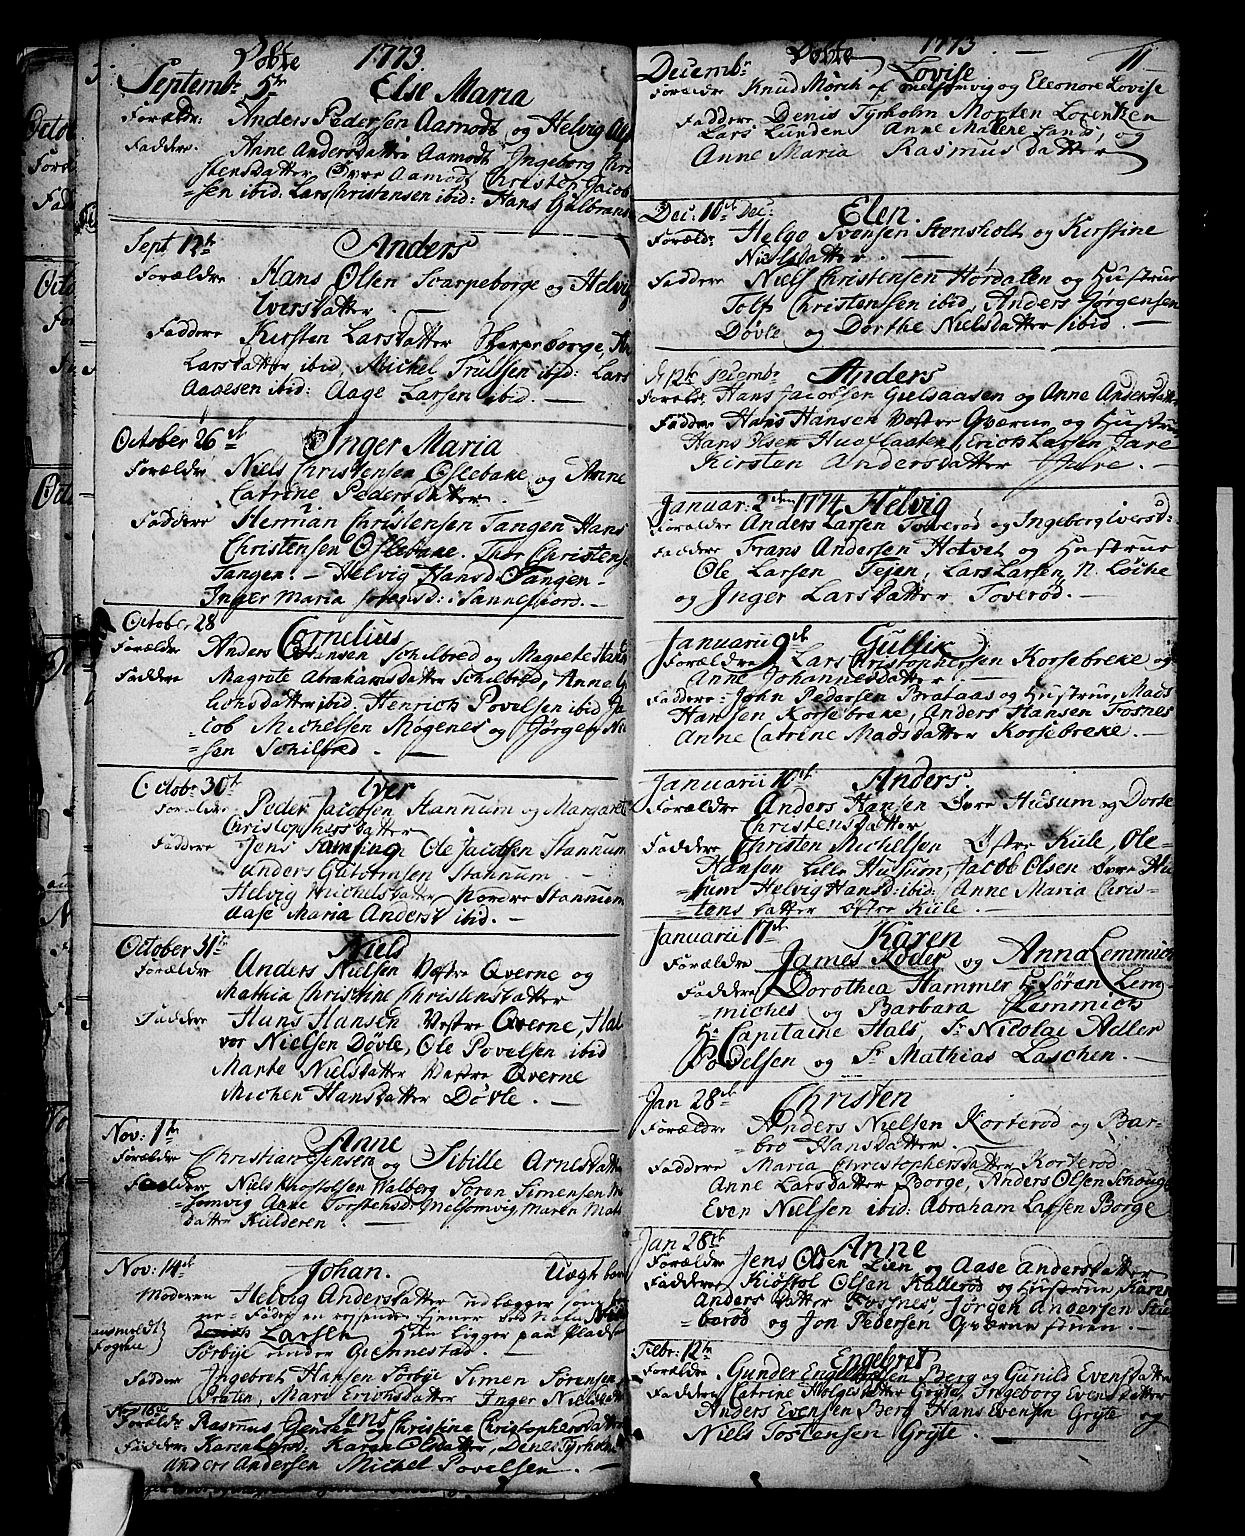 Døbte 1773
Septembr 5te Else Maria
Forældr: Anders Pedersen Aamodt og Helvig
Faddere. Anne Andersdatter Aamodt Ingeborg Chri
stensdatter Øvre Aamodt Christen Jacob
=sen ibid: Lars Christensen ibid: Hans Gulbrans
Sept 12te Anders
Forældre Hans Olsen Scarpeborge og Helvig
Iversdatter
Faddere Kirsten Larsdatter Skarpeborge,
Larsdatter ibid, Michel Trulssen ibid: Lars
Aagesen ibid: Aage Larsen ibid. —
October 26de Inger Maria
Forældre Niels Christensen Oslebake og Anne
Catrine Pedersdatter
Faddere Herman Christensen Tangen Hans
Christensen Oslebake. Thor Christens
Tangen. — Helvig Hansd Tangen —
Inger Maria i Sannefiord. —
October 28
Cornelius
Forældre Anders Schilbred og Magrete Hans
Faddere Magrete Abrahamsdatter Schilbred, Anne
datter ibid: Henrich Povelsen ibid Ja
=cob Michelsen Mogenes og Jørgen Ni
=sen Schilbred.
Octobr 30te Iver
Forældre Peder Jacobsen Stannum og Margaret
Christophersdatter
Faddere Jens Ole Jacobsen Stannum
Anders Stannum.
Helvig Michelsdatter Nordre Stannum
Aase Maria Andersd ibid. —
October 31te Niels
Forældre Anders Nielsen Vestre Qverne og
Mathia Christine Christensdatter
Faddere Hans Hansen Vestre Qverne, Hal
vor Nielsen Døvle, Ole Povelsen ibid
Marte Nielsdatter Vestre Qverne
Michen Hansdatter Døvle. —
Nov: 1te Anne
Forældre Christian Jensen og Sibille Arnesdatter
Faddere Niels Walberg Søren Simensen
=somvig Anne Torstensdr Melsomvig Maren
datter Kulderen —
Nov: 14de Johan. Uægt barn
Moderen Helvig Andersdatter udlægger som
=ne= Fader en reisende tiener ved Nafn
Larsen Han ligger paa Plads
Sørbye under Giennestad.
Fadder Ingebret Hansen Sørbye Simen Sørensen
Præsten, Mari Erichsdatter Inger Nielsdatter
Nov 16de Jens
Forældr: Rasmus Jensen og Christine Christophersdatter
Faddere Karen Karen Olsdatter, Denis Tyrholm
Anders Andersen Michel Povelsen. —
Døbte 1773 — 11
Decembr Lovise
Forældre Knud Mörch af melsomvig og Eleonore Lovise
Faddere Denis Tyrholm Morten Lorentzen
Lars Lunden Anne Malene Lands, og
Anne Maria Rasmusdatter
Dec. 10de Dec: Elen.
Forældr: Helgo Svensen Stensholt og Kirstine
Nielsdatter. —
Faddere Niels Christensen Hørdalen og Hustrue
Tolf Christensen ibid, Anders Jørgensen
Døvle og Dorthe Nielsdatter ibid. —
d 12te Decembr Anders
Forældr. Hans Jacobsen Gielsaasen og Anne Andersdatter
Fadder Hans Hansen Vestre Qværne og Hustrue
Hans Olsen Huaslaaten, Erich Larsen Jare
Kirsten Andersdatter Jare. —
Januar: 2den 1774 Helvig
Forældre Anders Larsen Toverød og Ingeborg Iversd:
Faddere Frans Andersen Hotvet og Hustrue
Ole Larsen Fejen, Lars Larsen N. Løcke
og Inger Larsdatter Toverød. —
Januarii 9de Gullix
Forældre Lars Christophersen Korsebreke og
Anne Johannesdatter. —
Faddere: John Pedersen Brataas og Hustrue, Mads
Hansen Korsebreke, Anders Hansen Fosnes
Anne Catrine Madsdatter Korsebreke. —
Januarii 10de Anders
Forældre Anders Hansen Øvre Husum og Dorte
Christensdatter
Faddere Christen Michelsen Østre Kiile, Ole=
Hansen Lille Husum, Jacob Olsen Øvre Hu
=sum Helvig Hansd: ibid: Anne Maria Chris=
=tensdatter Østre Kiile. —
Januarii 17de Karen
Forældre James Röder og Anna Lemmich
Faddere Dorothea Hammer Hr Søren Lem=
=miches og Barbara Lemmich
Hr Capitaine Hals Sr Nicolai Adler
Povelsen og Sr Mathias Laschen. —
Jan 28de Christen
Forældre Anders Nielsen Korterød og Bar=
=bro Hansdatter. —
Faddere Maria Christophersdatter Korterød
Anne Larsdatter Borge, Anders Olsen Schouge
Even Nielsen ibid: Abraham Larsen Borge
Jan 28de Anne
Forældre Jens Olsen Lien og Aase Andersdatter
Faddere Kiøstol Olsen Kallerød og Hustrue Karen
Andersdatter Fosnes, Jørgen Andersen
=barød og Jon Pedersen Qværnetuen. —
Febr: 12te Engebret
Forældre Gunder Engebretsen Berg og Gunild Evensdatter
Faddere Catrine Holgesdatter Gryte, Ingeborg Evensdatter
Anders Evensen Berg Hans Evensen Gryte og
Niels Tostensen Gryte. —